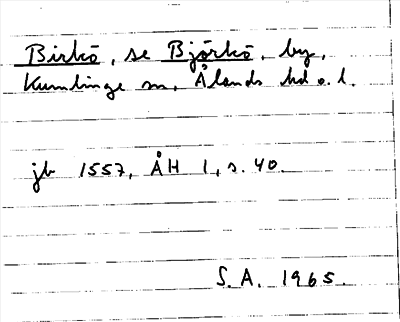 Birkö, se Björkö, by,
Kumlinge sn, Ålands hd o. l.
jb 1557, ÅH 1, s. 40.
S. A. 1965.